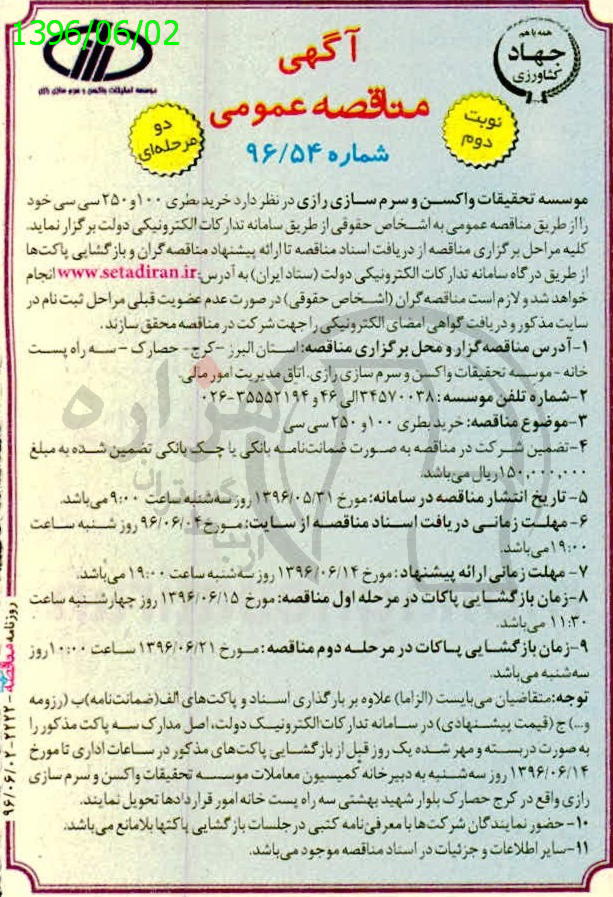 1396/06/02
همه با هم
جهاد
کشاورزی
موسسه تحقیقات واکسن و سرم سازی رازی
آگهی
مناقصه عمومی
شماره ۹۶/۵۴
نوبت
دوم
دو
مرحله‌ای
موسسه تحقیقات واکسن و سرم سازی رازی در نظر دارد خرید بطری ۱۰۰ و ۲۵۰ سی سی خود
را از طریق مناقصه عمومی به اشخاص حقوقی از طریق سامانه تدارکات الکترونیکی دولت برگزار نماید.
کلیه مراحل برگزاری مناقصه از دریافت اسناد مناقصه تا ارائه پیشنهاد مناقصه گران و بازگشایی پاکت‌ها
از طریق درگاه سامانه تدارکات الکترونیکی دولت (ستاد ایران) به آدرس: www.setadiran.ir انجام
خواهد شد و لازم است مناقصه گران (اشخاص حقوقی) در صورت عدم عضویت قبلی مراحل ثبت نام در
سایت مذکور و دریافت گواهی امضای الکترونیکی را جهت شرکت در مناقصه محقق سازند.
۱-آدرس مناقصه گزار و محل برگزاری مناقصه: استان البرز – کرج – حصارک – سه راه پست
خانه - موسسه تحقیقات واکسن و سرم سازی رازی، اتاق مدیریت امور مالی.
۲-شماره تلفن موسسه: ۳۴۵۷۰۰۳۸ الی ۴۶ و ۳۵۵۵۲۱۹۴-۰۲۶
۳-موضوع مناقصه: خرید بطری ۱۰۰ و ۲۵۰ سی سی
۴-تضمین شرکت در مناقصه به صورت ضمانت‌نامه بانکی یا چک بانکی تضمین شده به مبلغ
۱۵۰,۰۰۰,۰۰۰ ریال می‌باشد.
۵- تاریخ انتشار مناقصه در سامانه: مورخ ۱۳۹۶/۰۵/۳۱ روز سه‌شنبه ساعت ۹:۰۰ می‌باشد.
۶- مهلت زمانی دریافت اسناد مناقصه از سایت: مورخ ۹۶/۰۶/۰۴ روز شنبه ساعت
۱۹:۰۰ می‌باشد.
۷- مهلت زمانی ارائه پیشنهاد: مورخ ۱۳۹۶/۰۶/۱۴ روز سه‌شنبه ساعت ۱۹:۰۰ می‌باشد.
۸-زمان بازگشایی پاکات در مرحله اول مناقصه: مورخ ۱۳۹۶/۰۶/۱۵ روز چهارشنبه ساعت
۱۱:۳۰ می‌باشد.
۹-زمان بازگشایی پاکات در مرحله دوم مناقصه: مورخ ۱۳۹۶/۰۶/۲۱ ساعت ۱۰:۰۰ روز
سه‌شنبه می‌باشد.
توجه: متقاضیان می‌بایست (الزاما) علاوه بر بارگذاری اسناد و پاکت‌های الف (ضمانت‌نامه) ب (رزومه
و...) ج (قیمت پیشنهادی) در سامانه تدارکات الکترونیک دولت، اصل مدارک سه پاکت مذکور را
به صورت دربسته و مهر شده یک روز قبل از بازگشایی پاکت‌های مذکور در ساعات اداری تا مورخ
۱۳۹۶/۰۶/۱۴ روز سه‌شنبه به دبیرخانه کمیسیون معاملات موسسه تحقیقات واکسن و سرم سازی
رازی واقع در کرج حصارک بلوار شهید بهشتی سه راه پست خانه امور قراردادها تحویل نمایند.
۱۰- حضور نمایندگان شرکت‌ها با معرفی‌نامه کتبی در جلسات بازگشایی پاکتها بلامانع می‌باشد.
۱۱-سایر اطلاعات و جزئیات در اسناد مناقصه موجود می‌باشد.
روزنامه مناقصه - ۲۲۲۲ - ۹۶/۰۶/۰۲
هزاره